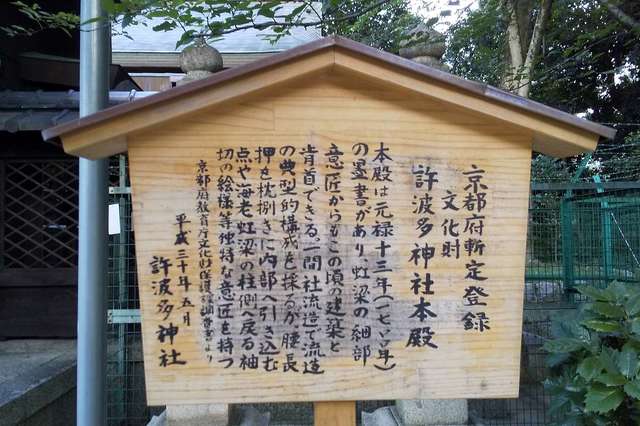 京都府暫定登録
文化財
許波多神社本殿
本殿は元禄十三年(一七〇〇年)
の墨書があり 虹梁の細部
意匠からもこの頃の建築と
肯首できる。一間社流造で流造
の典型的構成を採るが、腰長
押を枕捌きに内部へ引き込む
点や海老虹梁の柱側へ戻る袖
切の絵様等独特な意匠を持つ
京都府教育庁文化財保護課調査書より
平成三十年五月
許波多神社